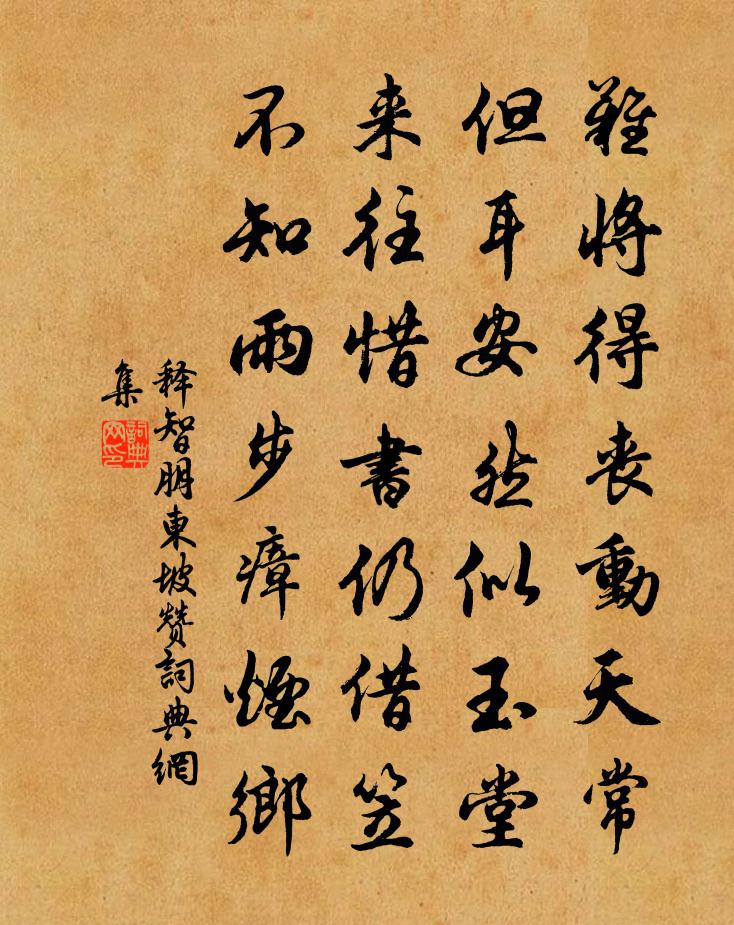 難將得丧動天常
但耳安然似玉堂
来往惜書仍借笠
不知雨步瘴煙鄉
释智朋東坡赞詞典網
集
詞典
网印